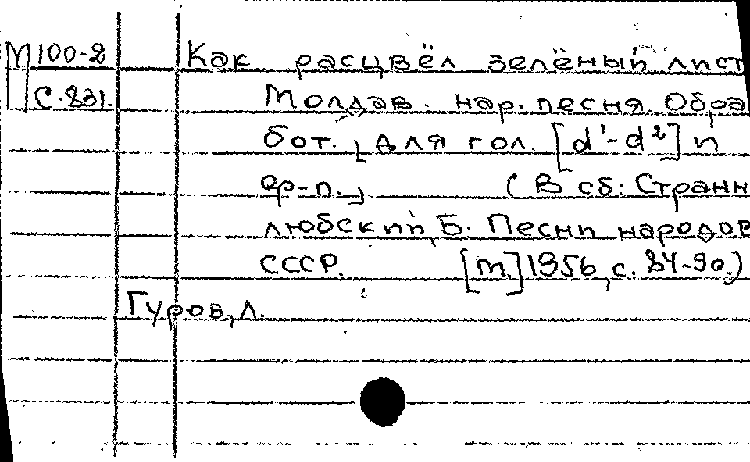 М 100-2 Как расцвёл зелёный лист
С.831. Молдав. нар. песня. Обра
бот. [для гол. [d'-d²] и
ф-п.] (В сб: Странн
любский, Б. Песни народов
СССР. [м.] 1956, с. 84-90.)
Гуров, Л.